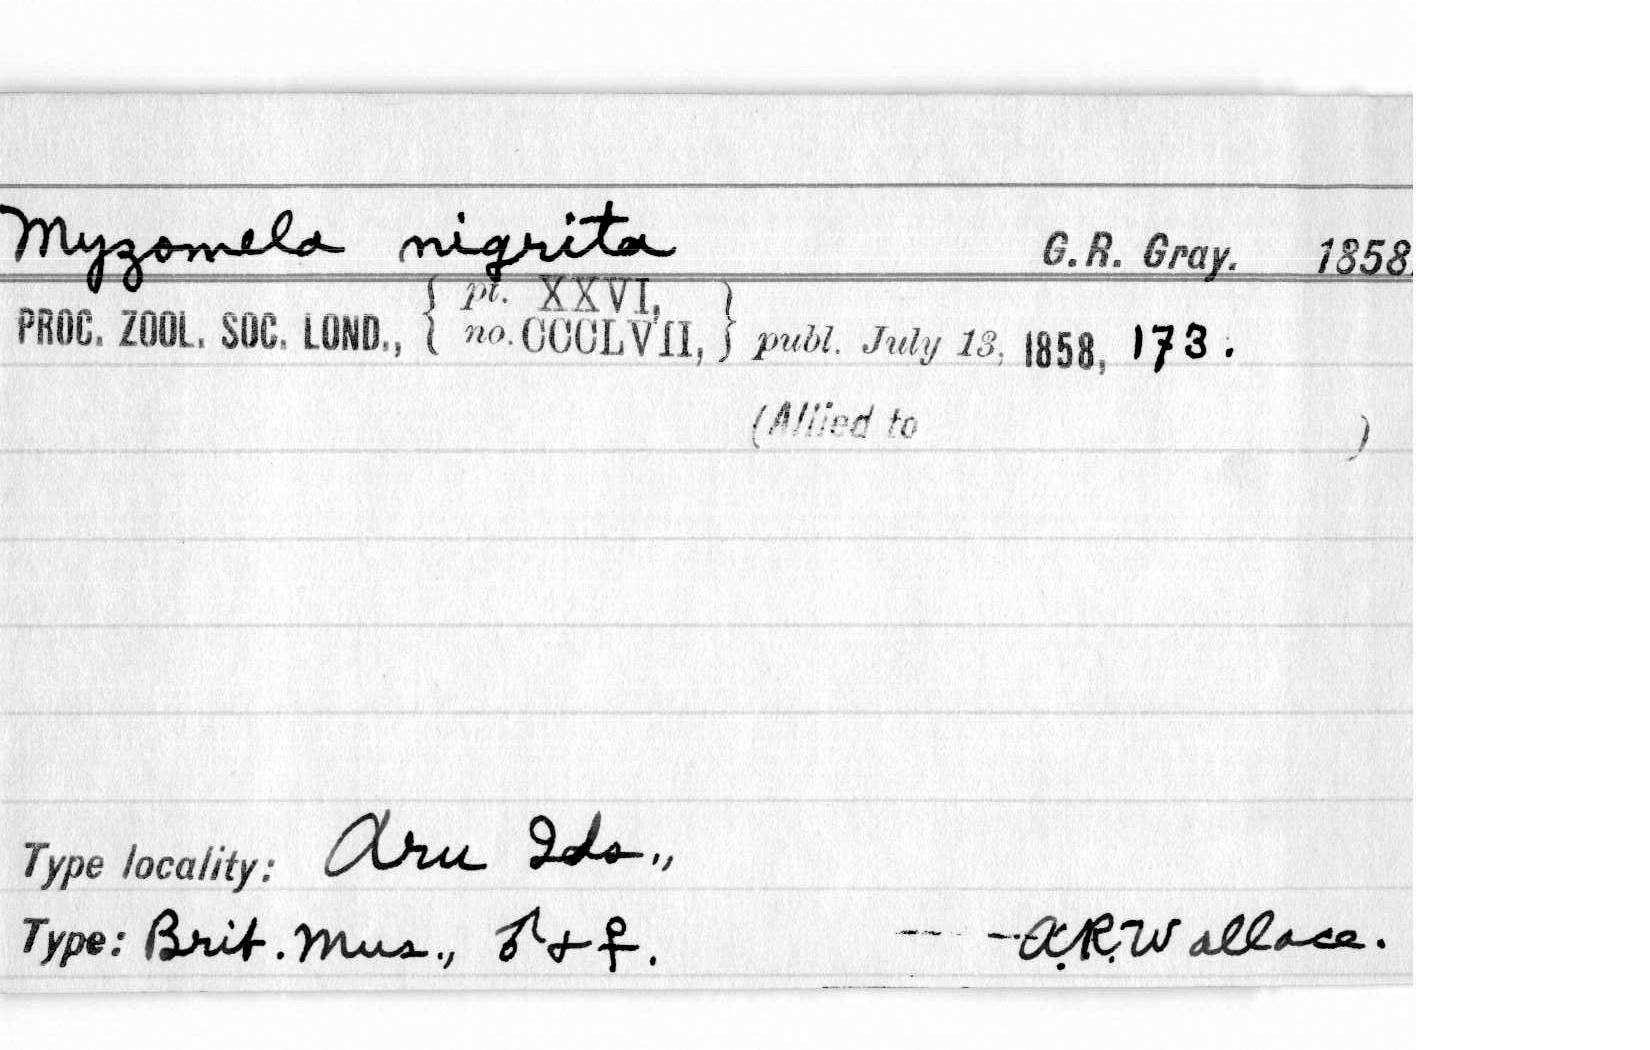 Myzomela nigrita G.R. Gray. 1858.
PROC. ZOOL. SOC. LOND., { pt. XXVI, no. CCCLVII, } publ. July 13, 1858, 173.
(Allied to )
Type locality: Aru Ids.,
Type: Brit. Mus., ♂ + ♀. — — A.R. Wallace.